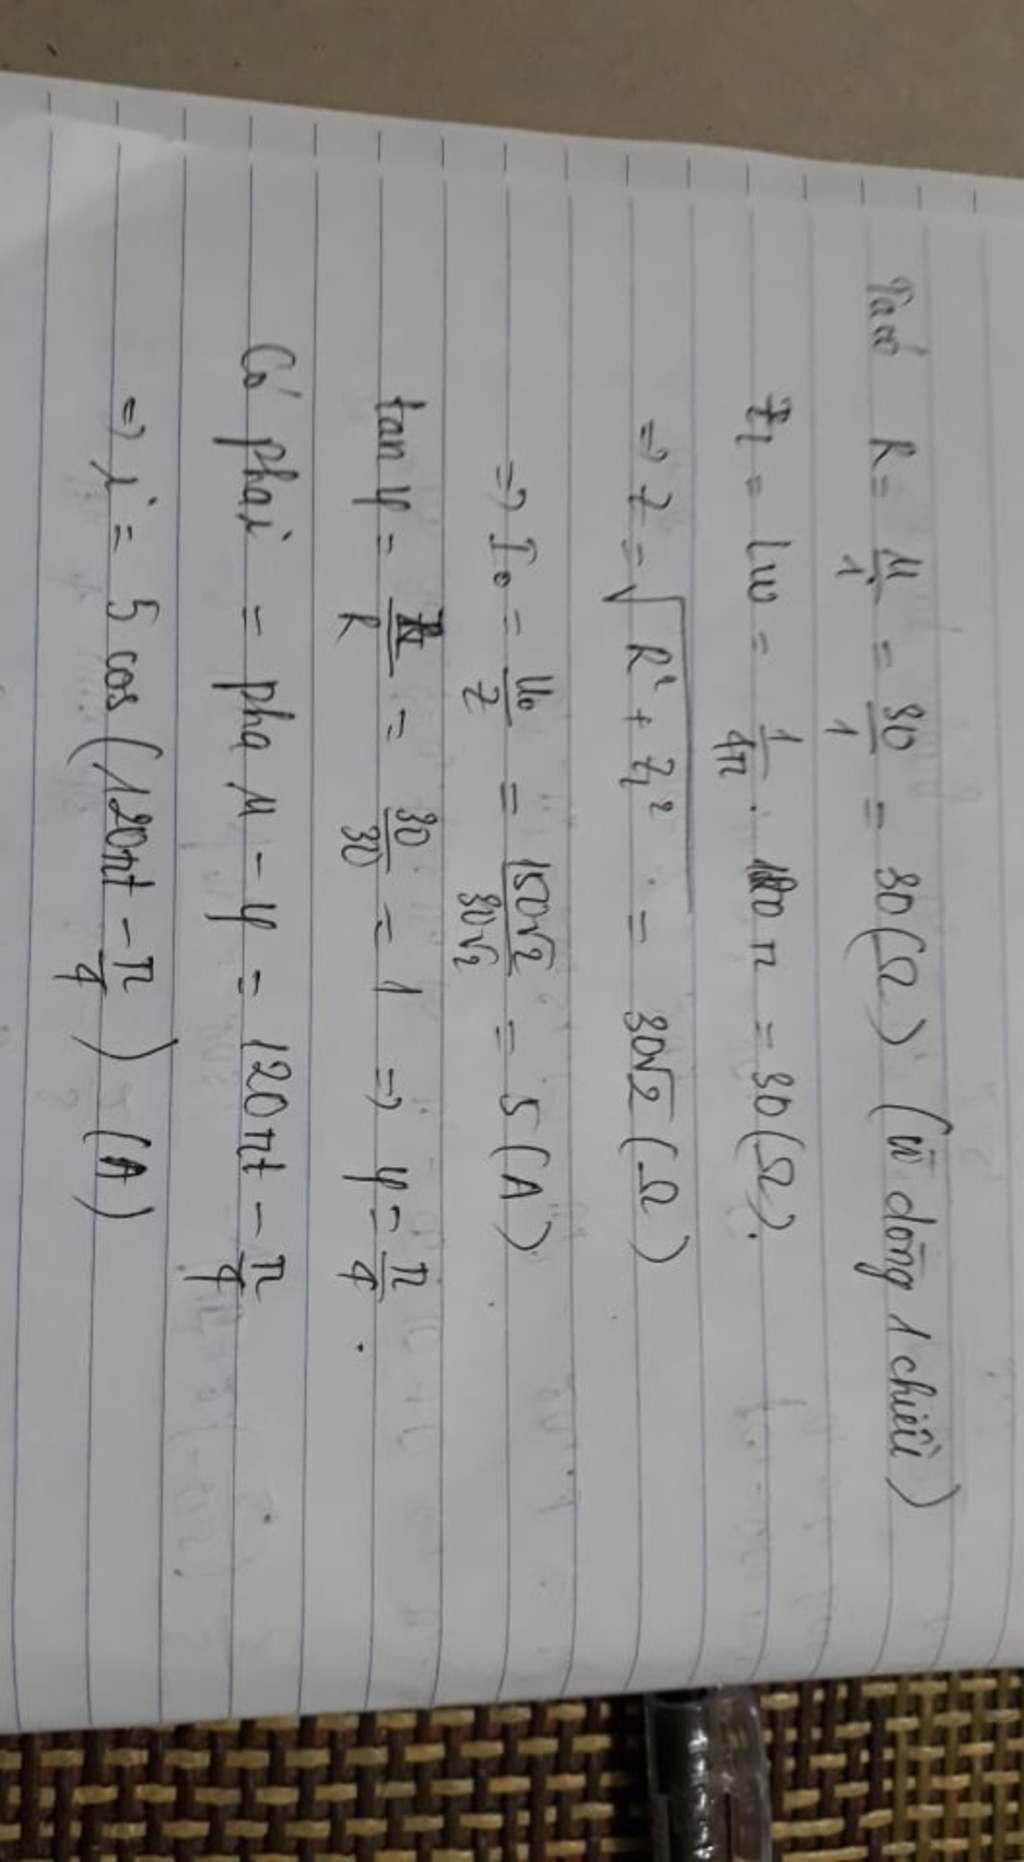 Ta có R = U/1 = 30/1 = 30 (Ω) (vì dòng 1 chiều)
ZL = Lω = 1/4π . 120π = 30 (Ω).
=> Z = √(R² + ZL²) = 30√2 (Ω)
=> I0 = U0/Z = 150√2/30√2 = 5 (A)
tan φ = ZL/R = 30/30 = 1 => φ = π/4.
Có pha i = pha u - φ = 120πt - π/4
=> i = 5 cos (120πt - π/4) (A)